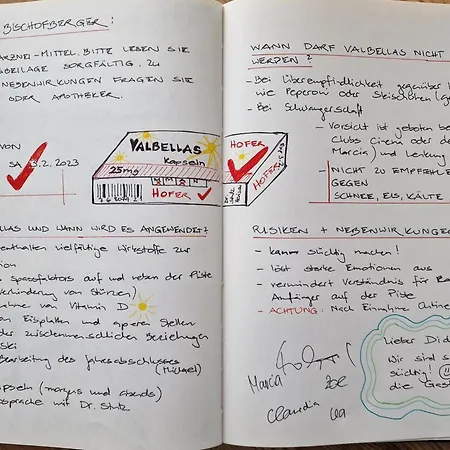 BISCHOFBERGER!
ARZNEI-MITTEL. BITTE LESEN SIE
SORGFÄLTIG. ZU
NEBENWIRKUNGEN FRAGEN SIE
ODER APOTHEKER.
VON
SA 3.2.2023
VALBELLAS
Kapseln
25mg
HOFER
HOFER
HOFER
UND WANN WIRD ES ANGEWENDET?
enthalten vielfältige Wirkstoffe zur
Spassfaktors auf und neben der Piste
von Stürzen)
von Vitamin D
Eisplatten und aperen Stellen
der zwischenmenschlichen Beziehungen
Bearbeitung des Jahresabschlusses
(Michael)
(morgens und abends)
mit Dr. Stutz
WANN DARF VALBELLAS NICHT
WERDEN?
- Bei Überempfindlichkeit gegenüber
wie Peperow oder Skischuhen
- Bei Schwangerschaft
- Vorsicht ist geboten bei
Clubs Cinema oder de
Marcia) und Lenkung
- NICHT ZU EMPFEHLE
GEGEN
SCHNEE, EIS, KÄLTE
RISIKEN + NEBENWIRKUNGE
- kann süchtig machen!
- löst starke Emotionen aus
- vermindert Verständnis für
Anfänger auf der Piste
- ACHTUNG: Nach Einnahme
Marcia
Zoe
Claudia
Lea
Lieber Did
Wir sind s
süchtig!
die Gast